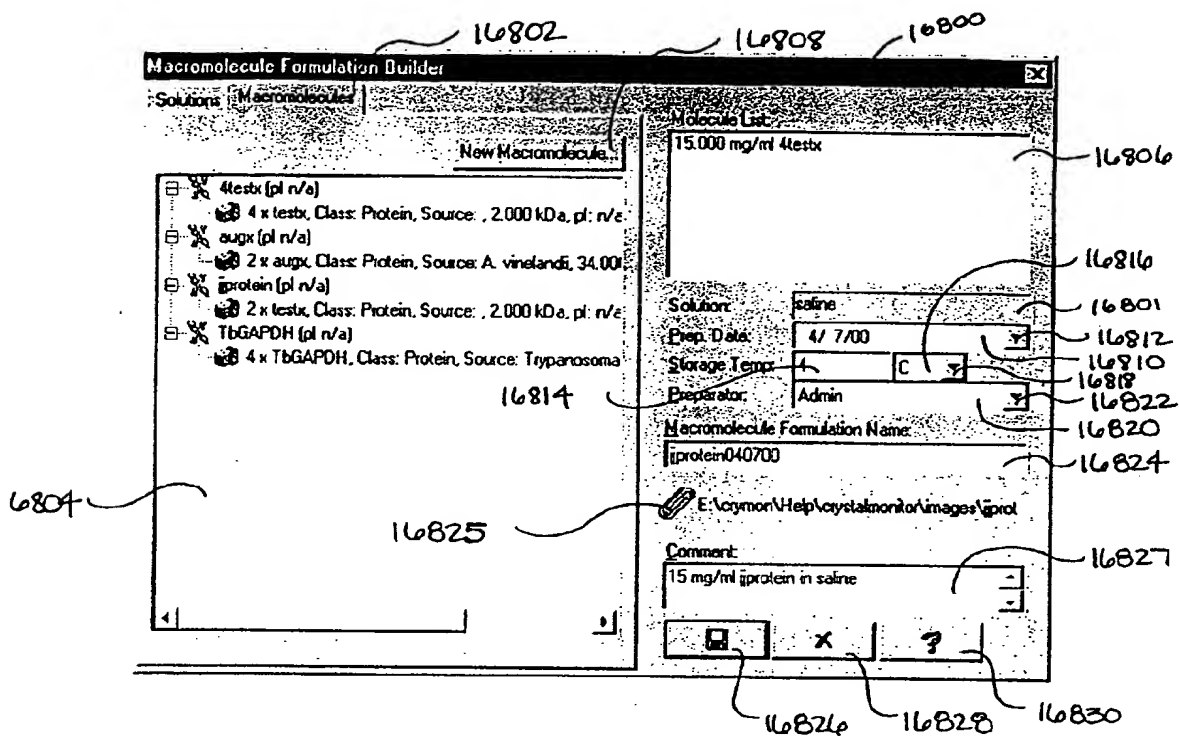 16802
16808
16800
Macromolecule Formulation Builder
Solutions Macromolecules
New Macromolecule...
4testx (pI n/a)
4 x testx, Class: Protein, Source: , 2.000 kDa, pI: n/a
augx (pI n/a)
2 x augx, Class: Protein, Source: A. vinelandii, 34.000
jjprotein (pI n/a)
2 x testx, Class: Protein, Source: , 2.000 kDa, pI: n/a
TbGAPDH (pI n/a)
4 x TbGAPDH, Class: Protein, Source: Trypanosoma
6804
Molecule List:
15.000 mg/ml 4testx
16806
16816
Solution: saline
16801
Prep. Date: 4/ 7/00
16812
16810
Storage Temp: 4 C
16818
16814
Preparator: Admin
16822
16820
Macromolecule Formulation Name:
jjprotein040700
16824
E:\crymon\Help\crystalmonitor\images\jjprot
16825
Comment:
15 mg/ml jjprotein in saline
16827
X ?
16826
16828
16830